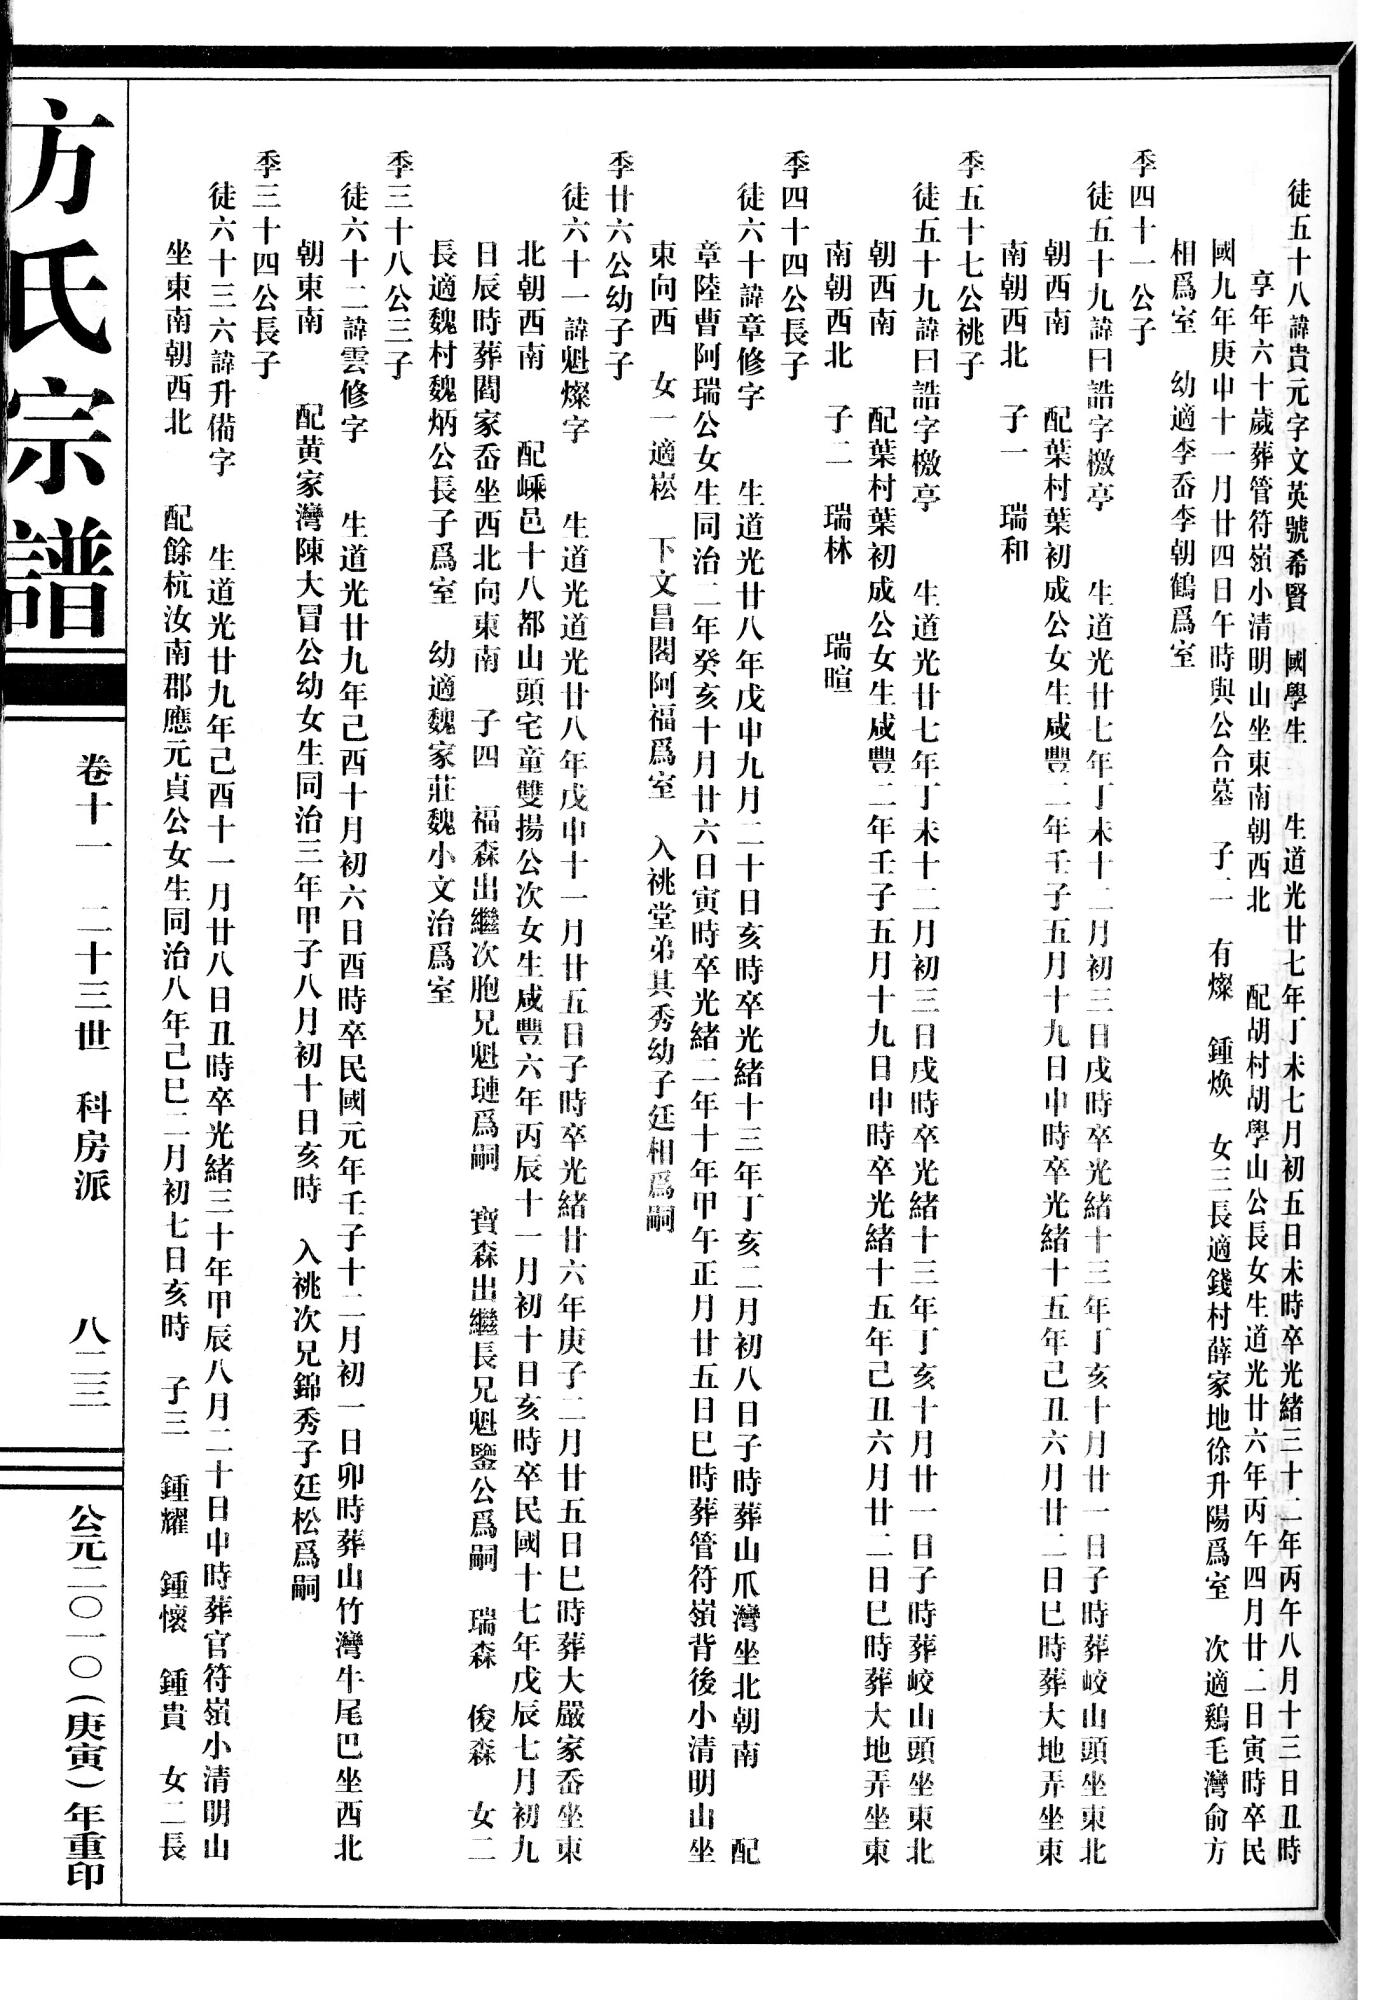 徒五十八諱貴元字文英號希賢　國學生　生道光廿七年丁未七月初五日未時卒光緒三十二年丙午八月十三日丑時
享年六十歲葬管符嶺小清明山坐東南朝西北　配胡村胡學山公長女生道光廿六年丙午四月廿二日寅時卒民
國九年庚申十一月廿四日午時與公合墓　子二　有燦　鍾煥　女三長適錢村薛家地徐升陽爲室　次適鷄毛灣俞方
相爲室　幼適李岙李朝鶴爲室
季四十一公子
徒五十九諱曰誥字檄亭　生道光廿七年丁未十二月初三日戌時卒光緒十三年丁亥十月廿一日子時葬峧山頭坐東北
朝西南　配葉村葉初成公女生咸豐二年壬子五月十九日申時卒光緒十五年己丑六月廿二日巳時葬大地弄坐東
南朝西北　子一　瑞和
季五十七公祧子
徒五十九諱曰誥字檄亭　生道光廿七年丁未十二月初三日戌時卒光緒十三年丁亥十月廿一日子時葬峧山頭坐東北
朝西南　配葉村葉初成公女生咸豐二年壬子五月十九日申時卒光緒十五年己丑六月廿二日巳時葬大地弄坐東
南朝西北　子二　瑞林　瑞暄
季四十四公長子
徒六十諱章修字　生道光廿八年戊申九月二十日亥時卒光緒十三年丁亥二月初八日子時葬山爪灣坐北朝南　配
章陸曹阿瑞公女生同治二年癸亥十月廿六日寅時卒光緒二年十年甲午正月廿五日巳時葬管符嶺背後小清明山坐
東向西　女一適崧　下文昌閣阿福爲室　入祧堂弟其秀幼子廷相爲嗣
季廿六公幼子子
徒六十一諱魁燦字　生道光道光廿八年戊申十一月廿五日子時卒光緒廿六年庚子二月廿五日巳時葬大嚴家岙坐東
北朝西南　配嵊邑十八都山頭宅童雙揚公次女生咸豐六年丙辰十一月初十日亥時卒民國十七年戊辰七月初九
日辰時葬閻家岙坐西北向東南　子四　福森出繼次胞兄魁璉爲嗣　寶森出繼長兄魁鑒公爲嗣　瑞森　俊森　女二
長適魏村魏炳公長子爲室　幼適魏家莊魏小文治爲室
季三十八公三子
徒六十二諱雲修字　生道光廿九年己酉十月初六日酉時卒民國元年壬子十二月初一日卯時葬山竹灣牛尾巴坐西北
朝東南　配黃家灣陳大冒公幼女生同治三年甲子八月初十日亥時　入祧次兄錦秀子廷松爲嗣
季三十四公長子
徒六十三六諱升備字　生道光廿九年己酉十一月廿八日丑時卒光緒三十年甲辰八月二十日申時葬官符嶺小清明山
坐東南朝西北　配餘杭汝南郡應元貞公女生同治八年己巳二月初七日亥時　子三　鍾耀　鍾懷　鍾貴　女二長
方氏宗譜
卷十一　二十三世　科房派　八二三
公元二〇一〇(庚寅)年重印